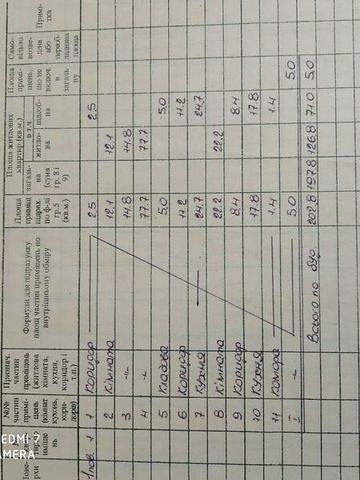 Повер-
хи
№№ частин примі-
щень
(кімнат
кухонь,
кори-
дорів)
Признач.
частин
приміщень
(житлова
кімната,
кухня,
коридор і
т.п.)
Формули для підрахунку
площ частин приміщень по
внутрішньому обміру
Площа
(кв.м.)
Площа житлових
квартир (кв.м.)
загаль-
на
(сума
гр. 8 і
9)
в т.ч.
житло-
ва
підсоб-
на
Площа
примі-
щень,
що не
входит
в
загаль
ну
Само-
вільно
зведе-
на
або
переоб-
ладнана
площа
Примі-
тка
1 пов. 1 1 Коридор 2.5 2.5
2 Кімната 12.1 12.1
3 -"- 14.8 14.8
4 -"- 77.7 77.7
5 Кладова 5.0 5.0
6 Коридор 11.2 11.2
7 Кухня 24.7 24.7
8 Кімната 22.2 22.2
9 Коридор 8.4 8.4
10 Кухня 17.8 17.8
11 Комора 1.4 1.4
I -"- 5.0 5.0
Всього по буд. 202.8 197.8 126.8 71.0 5.0
REDMI 7
CAMERA